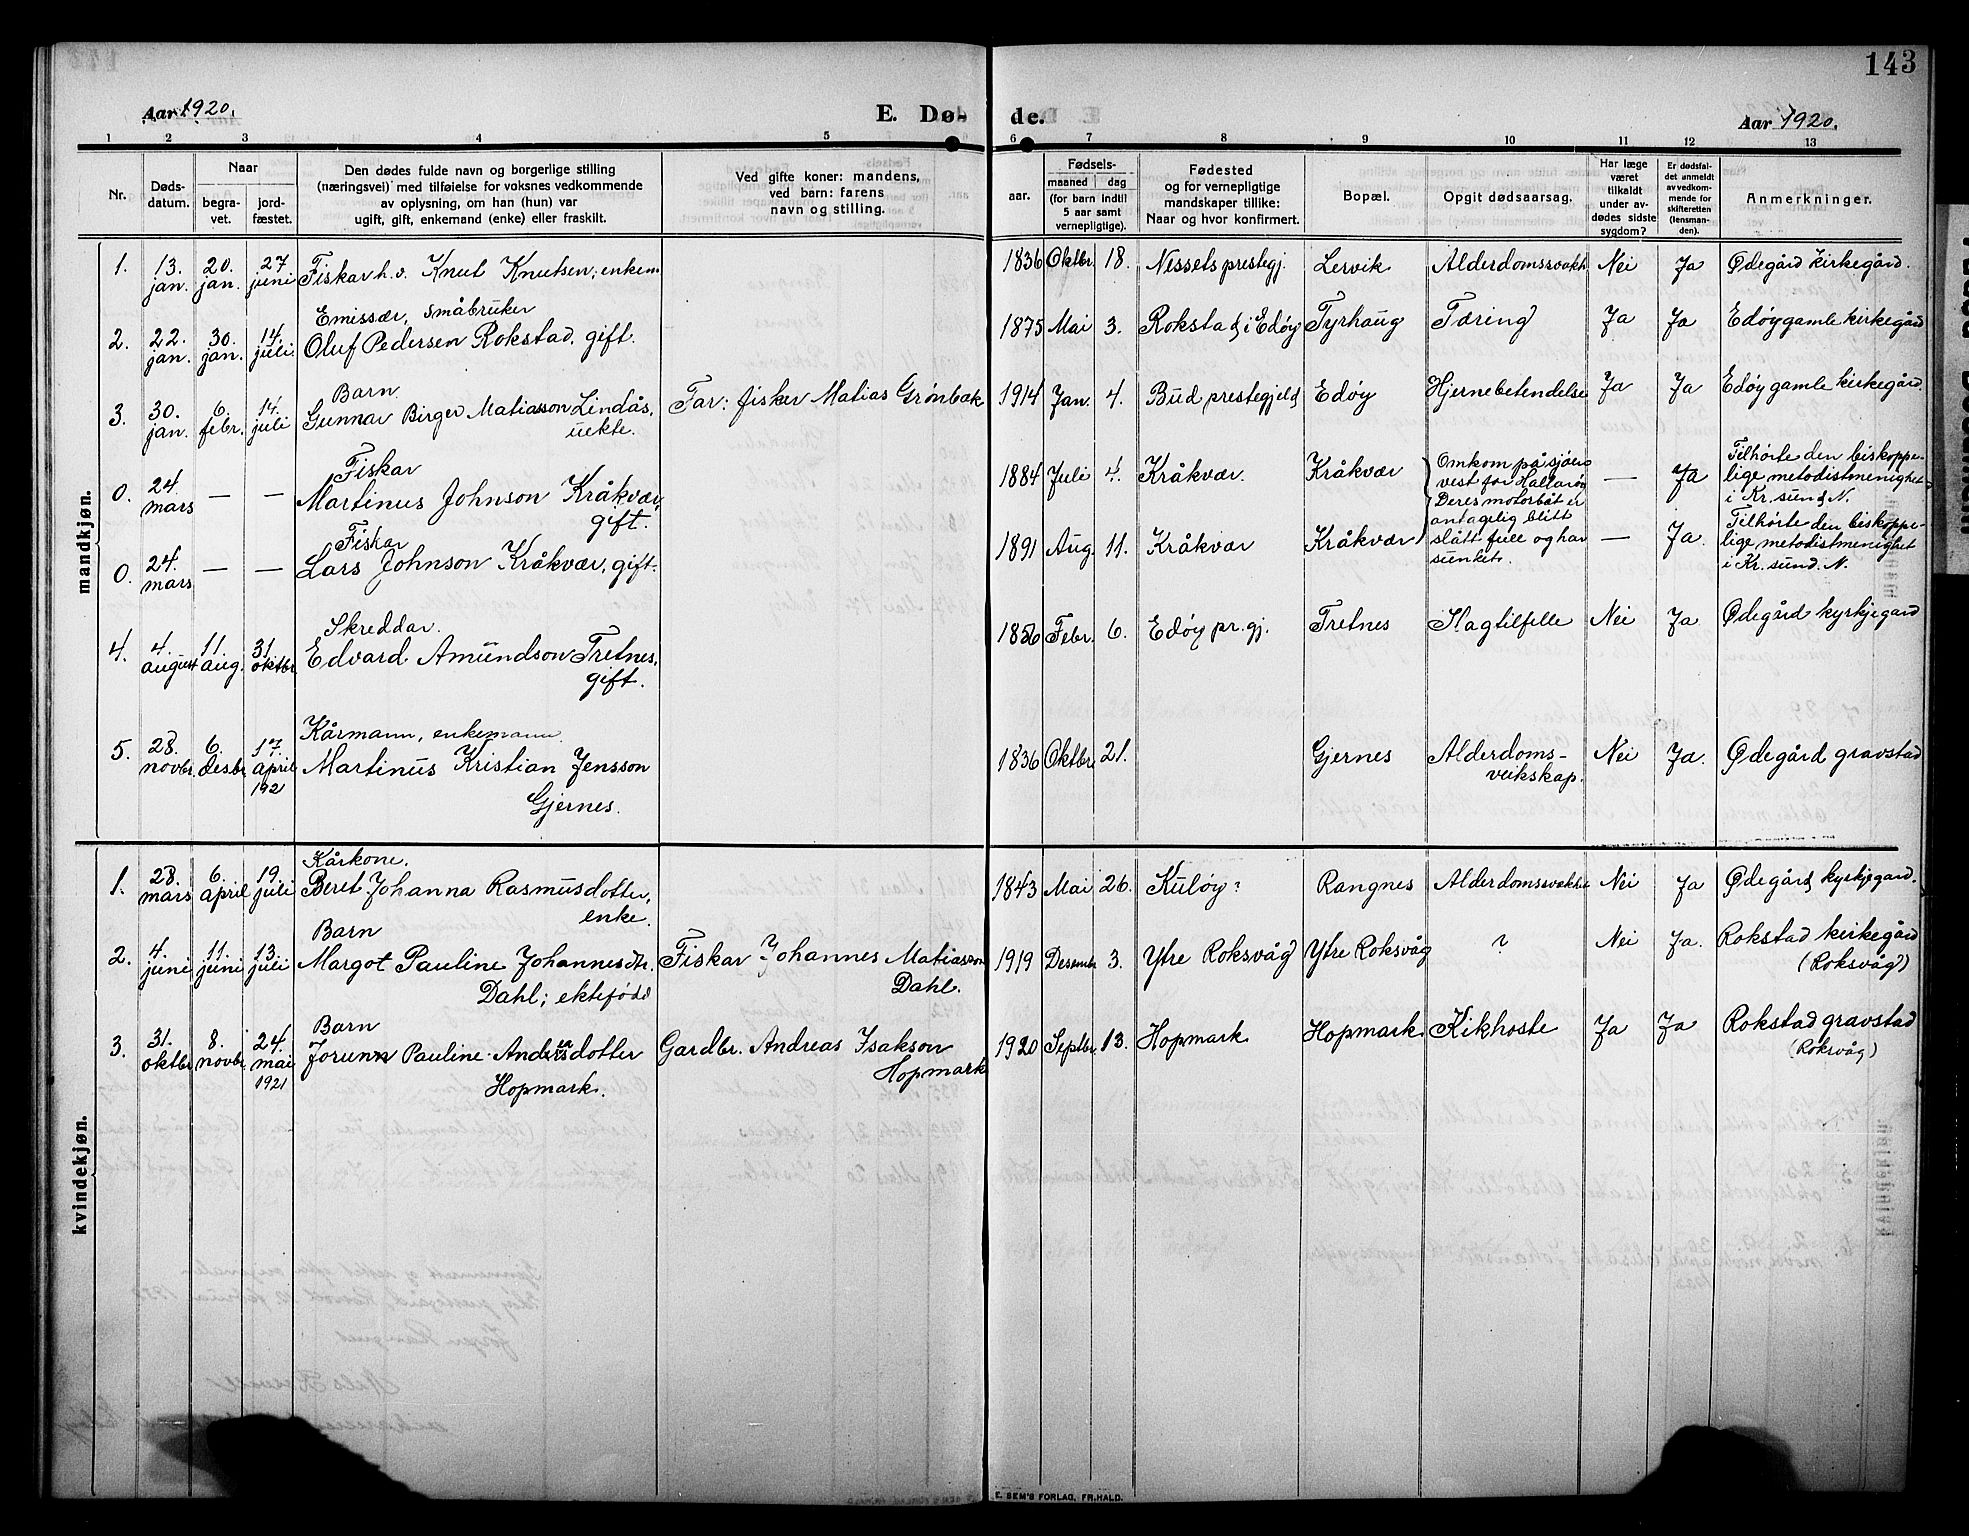 143
Aar 1920.
E. Dø-
de.
Aar 1920.
1 2 3 4 5 6 7 8 9 10 11 12 13
Nr.
Døds-
datum.
Naar
begra-
vet.
jord-
fæstet.
Den dødes fulde navn og borgerlige stilling
(næringsvei) med tilføielse for voksnes vedkommende
av oplysning, om han (hun) var
ugift, gift, enkemand (enke) eller fraskilt.
Ved gifte koner: mandens,
ved barn: farens
navn og stilling.
Fødsels-
aar.
maaned dag
(for barn indtil
5 aar samt
vernepligtige).
Fødested
og for vernepligtige
mandskaper tillike:
Naar og hvor konfirmert.
Bopæl.
Opgit dødsaarsag.
Har læge
været
tilkaldt
under av-
dødes sidste
sygdom?
Er dødsfal-
det anmeldt
av vedkom-
mende for
skifteretten
(lensman-
den).
Anmerkninger.
mandkjøn.
1. 13. jan. 20. jan. 27 juni Fiskar h.v. Knut Knutsen, enkem. 1836 Oktbr. 18. Nessets prestegj. Lervik Alderdomssvakh. Nei Ja Ødegård kirkegård.
Emissær, småbruker
2. 22. jan. 30. jan. 14. juli Oluf Pedersen Rokstad, gift. 1875 Mai 3. Rokstad i Edøy Tyrhaug Tæring Ja Ja Edøy gamle kirkegård
Barn
3. 30. jan. 6. febr. 14. juli Gunnar Birger Matiasson Lindås, Far: fisker Matias Grønbak 1914 Jan. 4. Bud prestegjeld Edøy Hjernebetendelse Ja Ja Edøy gamle kirkegård.
uekte.
Fiskar
0. 24 mars — — Martinus Johnson Kråkvær, 1884 Juli 4. Kråkvær. Kråkvær — Ja
gift.
Omkom på sjøen
vest for Hallarøy
Deres motorbåt er
antagelig blitt
slått full og har
sunket.
Tilhørte den biskoppe-
lige metodistmenighet
i Kr.sund N.
Fiskar
0. 24. mars — — Lars Johnson Kråkvær, gift. 1891 Aug. 11. Kråkvær Kråkvær — Ja.
Tilhørte den biskoppe-
lige metodistmenighet
i Kr.sund. N.
Skreddar.
4. 4. august 11. aug. 31. oktbr. Edvard Amundson Tretnes, 1856 Febr. 6. Edøy pr.gj. Tretnes Slagtilfelle Nei Ja Ødegård kyrkjegard
gift.
Kårmann, enkemann
5. 28. novbr. 6. desbr. 17. april 192 Martinus Kristian Jensson 1836 Oktbr. 21. Gjernes Alderdoms- Nei Ja. Ødegård gravstad
Gjernes. veikskap.
kvindekjøn.
Kårkone.
1. 28. mars 6. april 19. juli Beret Johanna Rasmusdotter, 1843 Mai 26. Kuløy? Rangnes Alderdomssvakhet Nei Ja Ødegård kyrkjegard.
enke.
Barn
2. 4. juni 11. juni 13. juli Margot Pauline Johannesdtr. Fiskar Johannes Matiasson 1919 Desembr. 3. Ytre Roksvåg Ytre Roksvåg ? Nei Ja. Rokstad kirkegård
Dahl; ektefødd Dahl. (Roksvåg)
Barn
3. 31. oktbr. 8. novbr. 24. mai 1921 Jorunn Pauline Andreasdotter Gardbr. Andreas Isakson 1920 Septbr. 13. Hopmark Hopmark. Kikhoste Ja Ja Rokstad gravstad
Hopmark. Hopmark (Roksvåg)
E. SEM'S FORLAG, FR.HALD.